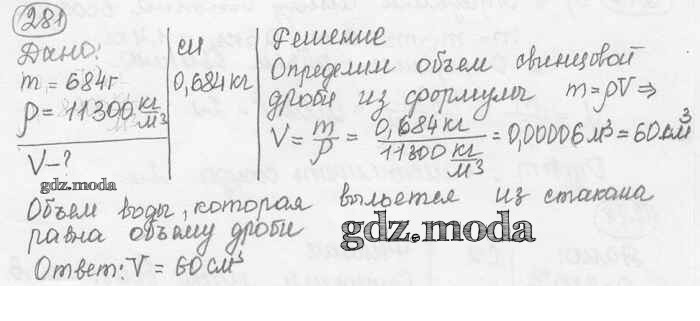 281
Дано:
m = 684г
ρ = 11300 кг/м³
V - ?
СИ
0,684 кг
Решение
Определим объем свинцовой
дроби из формулы m = ρV ⇒
V = m/ρ = 0,684 кг / 11300 кг/м³ = 0,00006 м³ = 60 см³
gdz.moda
Объем воды, которая выльется из стакана
равна объему дроби
gdz.moda
Ответ: V = 60 см³